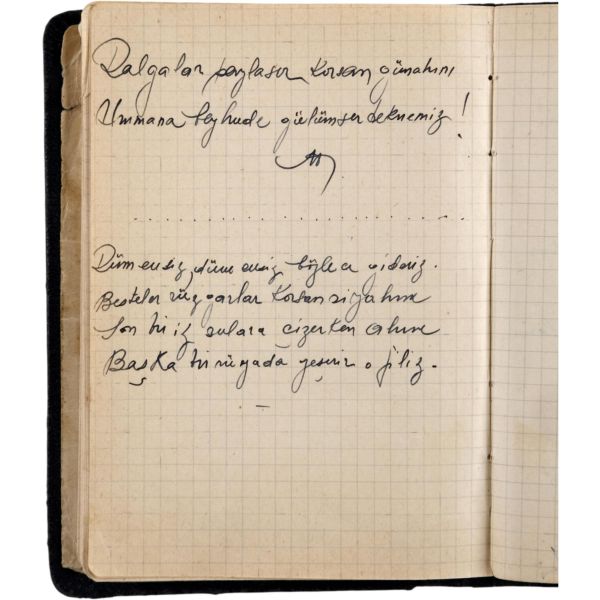 Dalgalar paylaşır korsan günahını
Ummana beyhude gülümser teknemiz!
Dümensiz, dümensiz böylece gideriz.
Besteler rüzgarlar korsan siyahını
Son bir iz sulara çizerken ahını
Başka bir rüyada yeşerir o filiz.